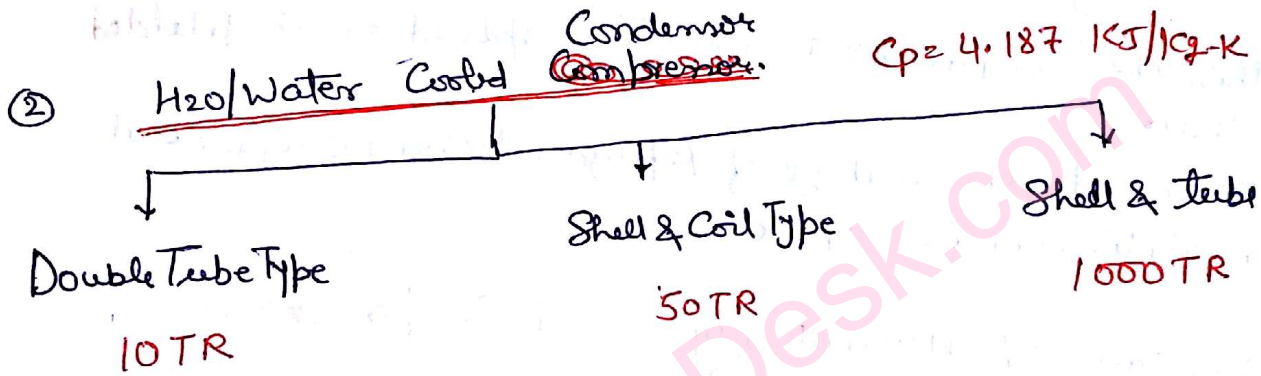 Condensor
② H2O/Water Cooled Compressor. Cp= 4.187 KJ/Kg-K
Double Tube Type
10 TR
Shell & Coil Type
50 TR
Shell & tube
1000 TR
Desk.com